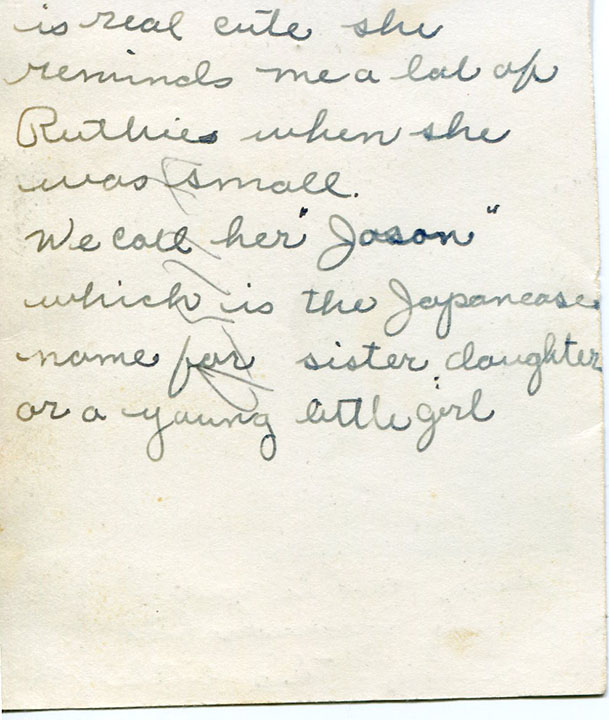 is real cute she
reminds me a lot of
Ruthie when she
was small.
We call her "Joson"
which is the Japanease
name for sister daughter
or a young little girl